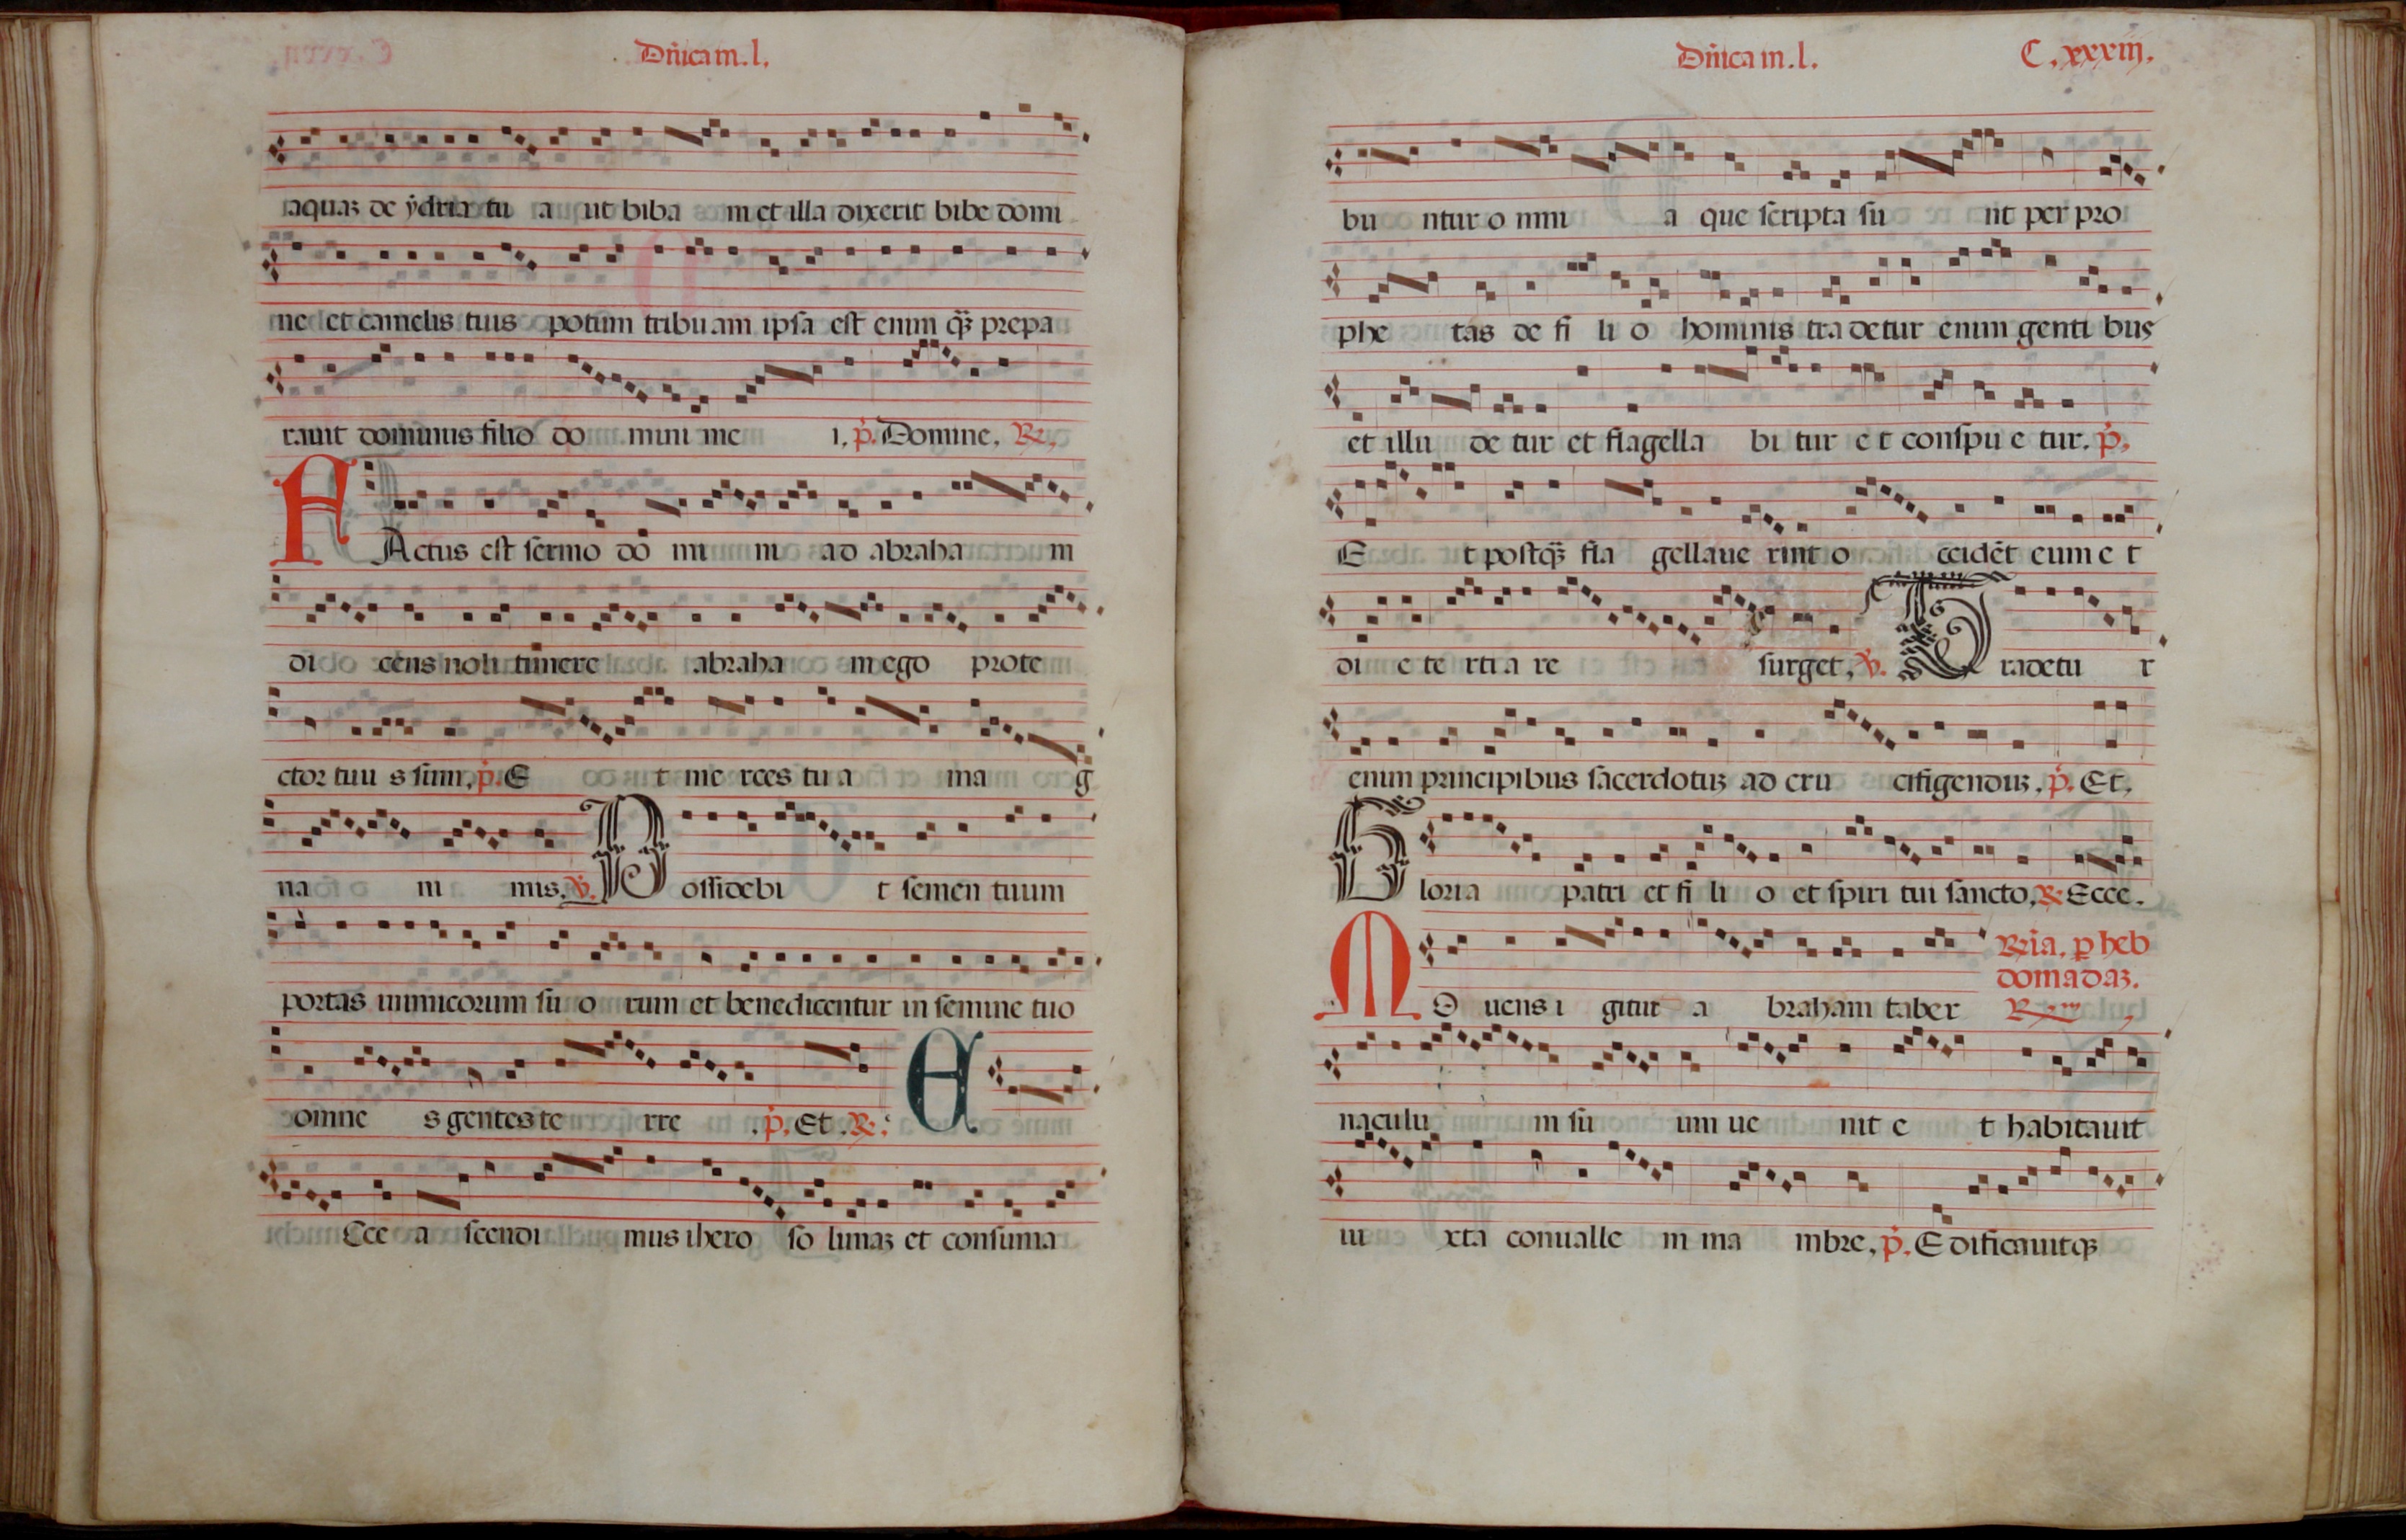 Dñica in.l.
aquaꝫ de ẏdria tu a ut biba m et illa dixerit bibe domi
ne et camelis tuis potum tribuam ipsa est enim qȝ̃ prepa
rauit dominus filio do mini me i. p̊. Domine. ℟.
FActus est sermo do mi ni ad abraha m
di cens noli timere abraha m ego prote
ctor tuu s sum. p̊. E t me rces tu a ma g
na ni mis. ℣. Possidebi t semen tuum
portas inimicorum su o rum et benedicentur in semine tuo
omne s gentes te rre . p̊. Et . ℟.
ECce a scendi mus ihero so limaꝫ et consuma
Dñica in.l. C.xxxiij.
bu ntur o mni a que scripta su nt per pro
phe tas de fi li o hominis tra detur enim genti bus
et illu de tur et flagella bi tur e t conspu e tur. p̊.
E t postqȝ̃ fla gellaue rint o ccidẽt eum e t
di e te rti a re surget. ℣. Tradetu r
enim principibus sacerdotuꝫ ad cru cifigenduꝫ. p̊. Et.
Gloria patri et fi li o et spiri tui sancto. ℟. Ecce.
MO uens i gitur a braham taber
℟ria. p heb
domadaꝫ.
naculu m su um ue nit e t habitauit
iu xta conualle m ma mbre. p̊. E dificauitqȝ